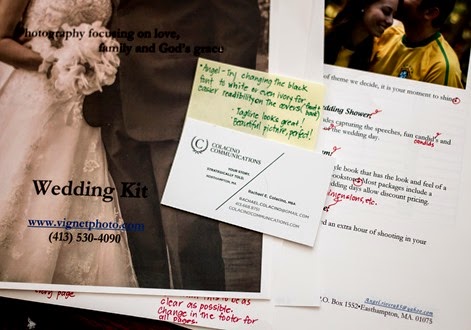 Photography focusing on love,
family and God's grace
Wedding Kit
www.vignetphoto.com
(413) 530-4090
*Angel-Try changing the black
font to white or even ivory for
easier readibility on the covers
(front + back)
- Tagline looks great!
- Beautiful picture, perfect!
COLACINO
COMMUNICATIONS
YOUR STORY.
STRATEGICALLY TOLD.
Rachael E. Colacino, MBA
RACHAEL.COLACINO@GMAIL.COM
COLACINOCOMMUNICATIONS.COM
of theme we decide, it is your moment to shine
Wedding Showers
capturing the speeches, fun candid's and
candids
the wedding day.
style book that has the look and feel of a
Most packages include a
wedding days allow discount pricing.
etc.
an extra hour of shooting in your
P.O. Box 1552•Easthampton, MA. 01075
page
this to be as
clear as possible.
Change in the footer for
all pages.